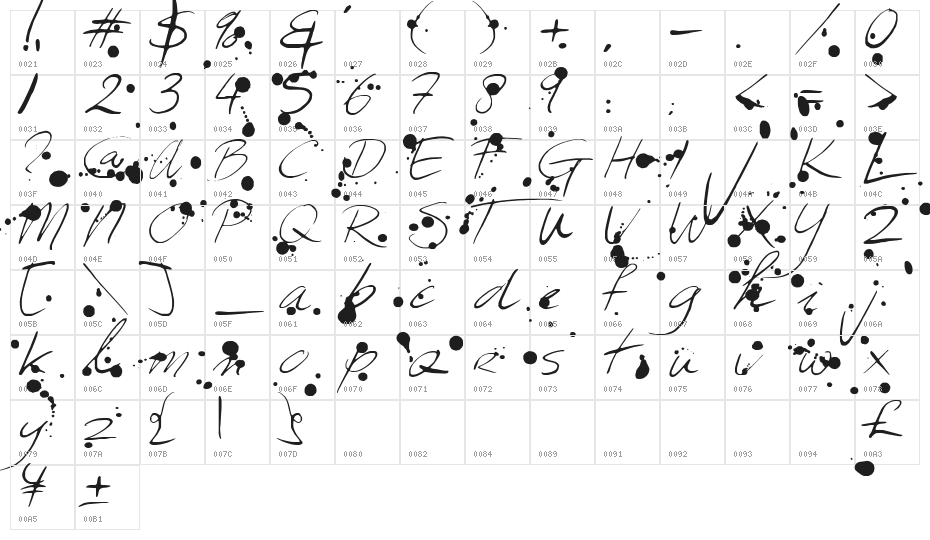 ! # $ % & ' ( ) + , - . / 0
0021 0023 0024 0025 0026 0027 0028 0029 002B 002C 002D 002E 002F 0030
1 2 3 4 5 6 7 8 9 : ; < = >
0031 0032 0033 0034 0035 0036 0037 0038 0039 003A 003B 003C 003D 003E
? @ A B C D E F G H I J K L
003F 0040 0041 0042 0043 0044 0045 0046 0047 0048 0049 004A 004B 004C
M N O P Q R S T U V W X Y Z
004D 004E 004F 0050 0051 0052 0053 0054 0055 0056 0057 0058 0059 005A
[ \ ] _ a b c d e f g h i j
005B 005C 005D 005F 0061 0062 0063 0064 0065 0066 0067 0068 0069 006A
k l m n o p q r s t u v w x
006B 006C 006D 006E 006F 0070 0071 0072 0073 0074 0075 0076 0077 0078
y z { | } £
0079 007A 007B 007C 007D 0080 0082 0084 0089 0091 0092 0093 0094 00A3
¥ ±
00A5 00B1